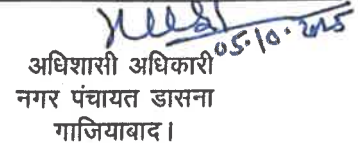 05.10.2025
अधिशासी अधिकारी
नगर पंचायत डासना
गाजियाबाद।